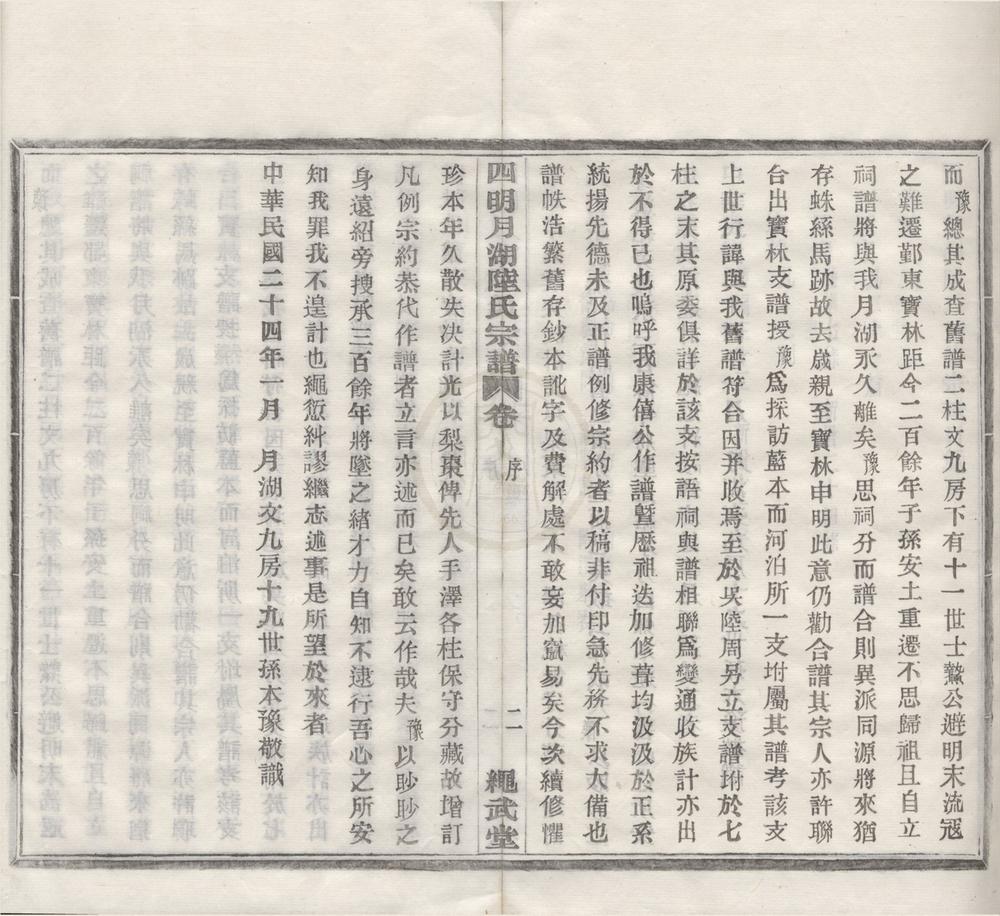 而豫總其成查舊譜二柱文九房下有十一世士鰲公避明末流寇
之難遷鄞東寶林距今二百餘年子孫安土重遷不思歸祖且自立
祠譜將與我月湖永久離矣豫思祠分而譜合則異派同源將來猶
存蛛絲馬跡故去歲親至寶林申明此意仍勸合譜其宗人亦許聯
台出寶林支譜授豫爲採訪藍本而河泊所一支坿屬其譜考該支
上世行諱與我舊譜符合因并收焉至於吳陸周另立支譜坿於七
柱之末其原委俱詳於該支按語祠與譜相聯爲變通收族計亦出
於不得已也嗚呼我康僖公作譜暨厯祖迭加修葺均汲汲於正系
統揚先德未及正譜例修宗約者以稿非付印急先務不求大備也
譜帙浩繁舊存鈔本訛字及費解處不敢妄加竄易矣今次續修懼
四明月湖陸氏宗譜 卷一 序 二 繩武堂
珍本年久散失决計光以梨棗俾先人手澤各柱保守分藏故增訂
凡例宗約桊代作譜者立言亦述而已矣敢云作哉夫豫以眇眇之
身遠紹旁搜承三百餘年將墜之緒才力自知不逮行吾心之所安
知我罪我不遑計也繩愆糾謬繼志述事是所望於來者
中華民國二十四年一月 月湖文九房十九世孫本豫敬識